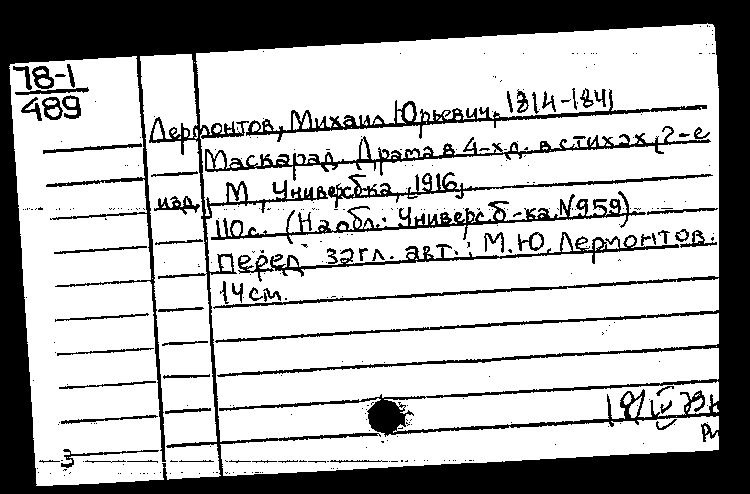 78-1
489
Лермонтов, Михаил Юрьевич, 1814-1841
Маскарад. Драма в 4-х д. в стихах. [2-е
изд.] М., Универс. б-ка, [1916].
110 с. (На обл.: Универс. б-ка. N959).
Перед загл. авт.: М.Ю. Лермонтов.
14 см.